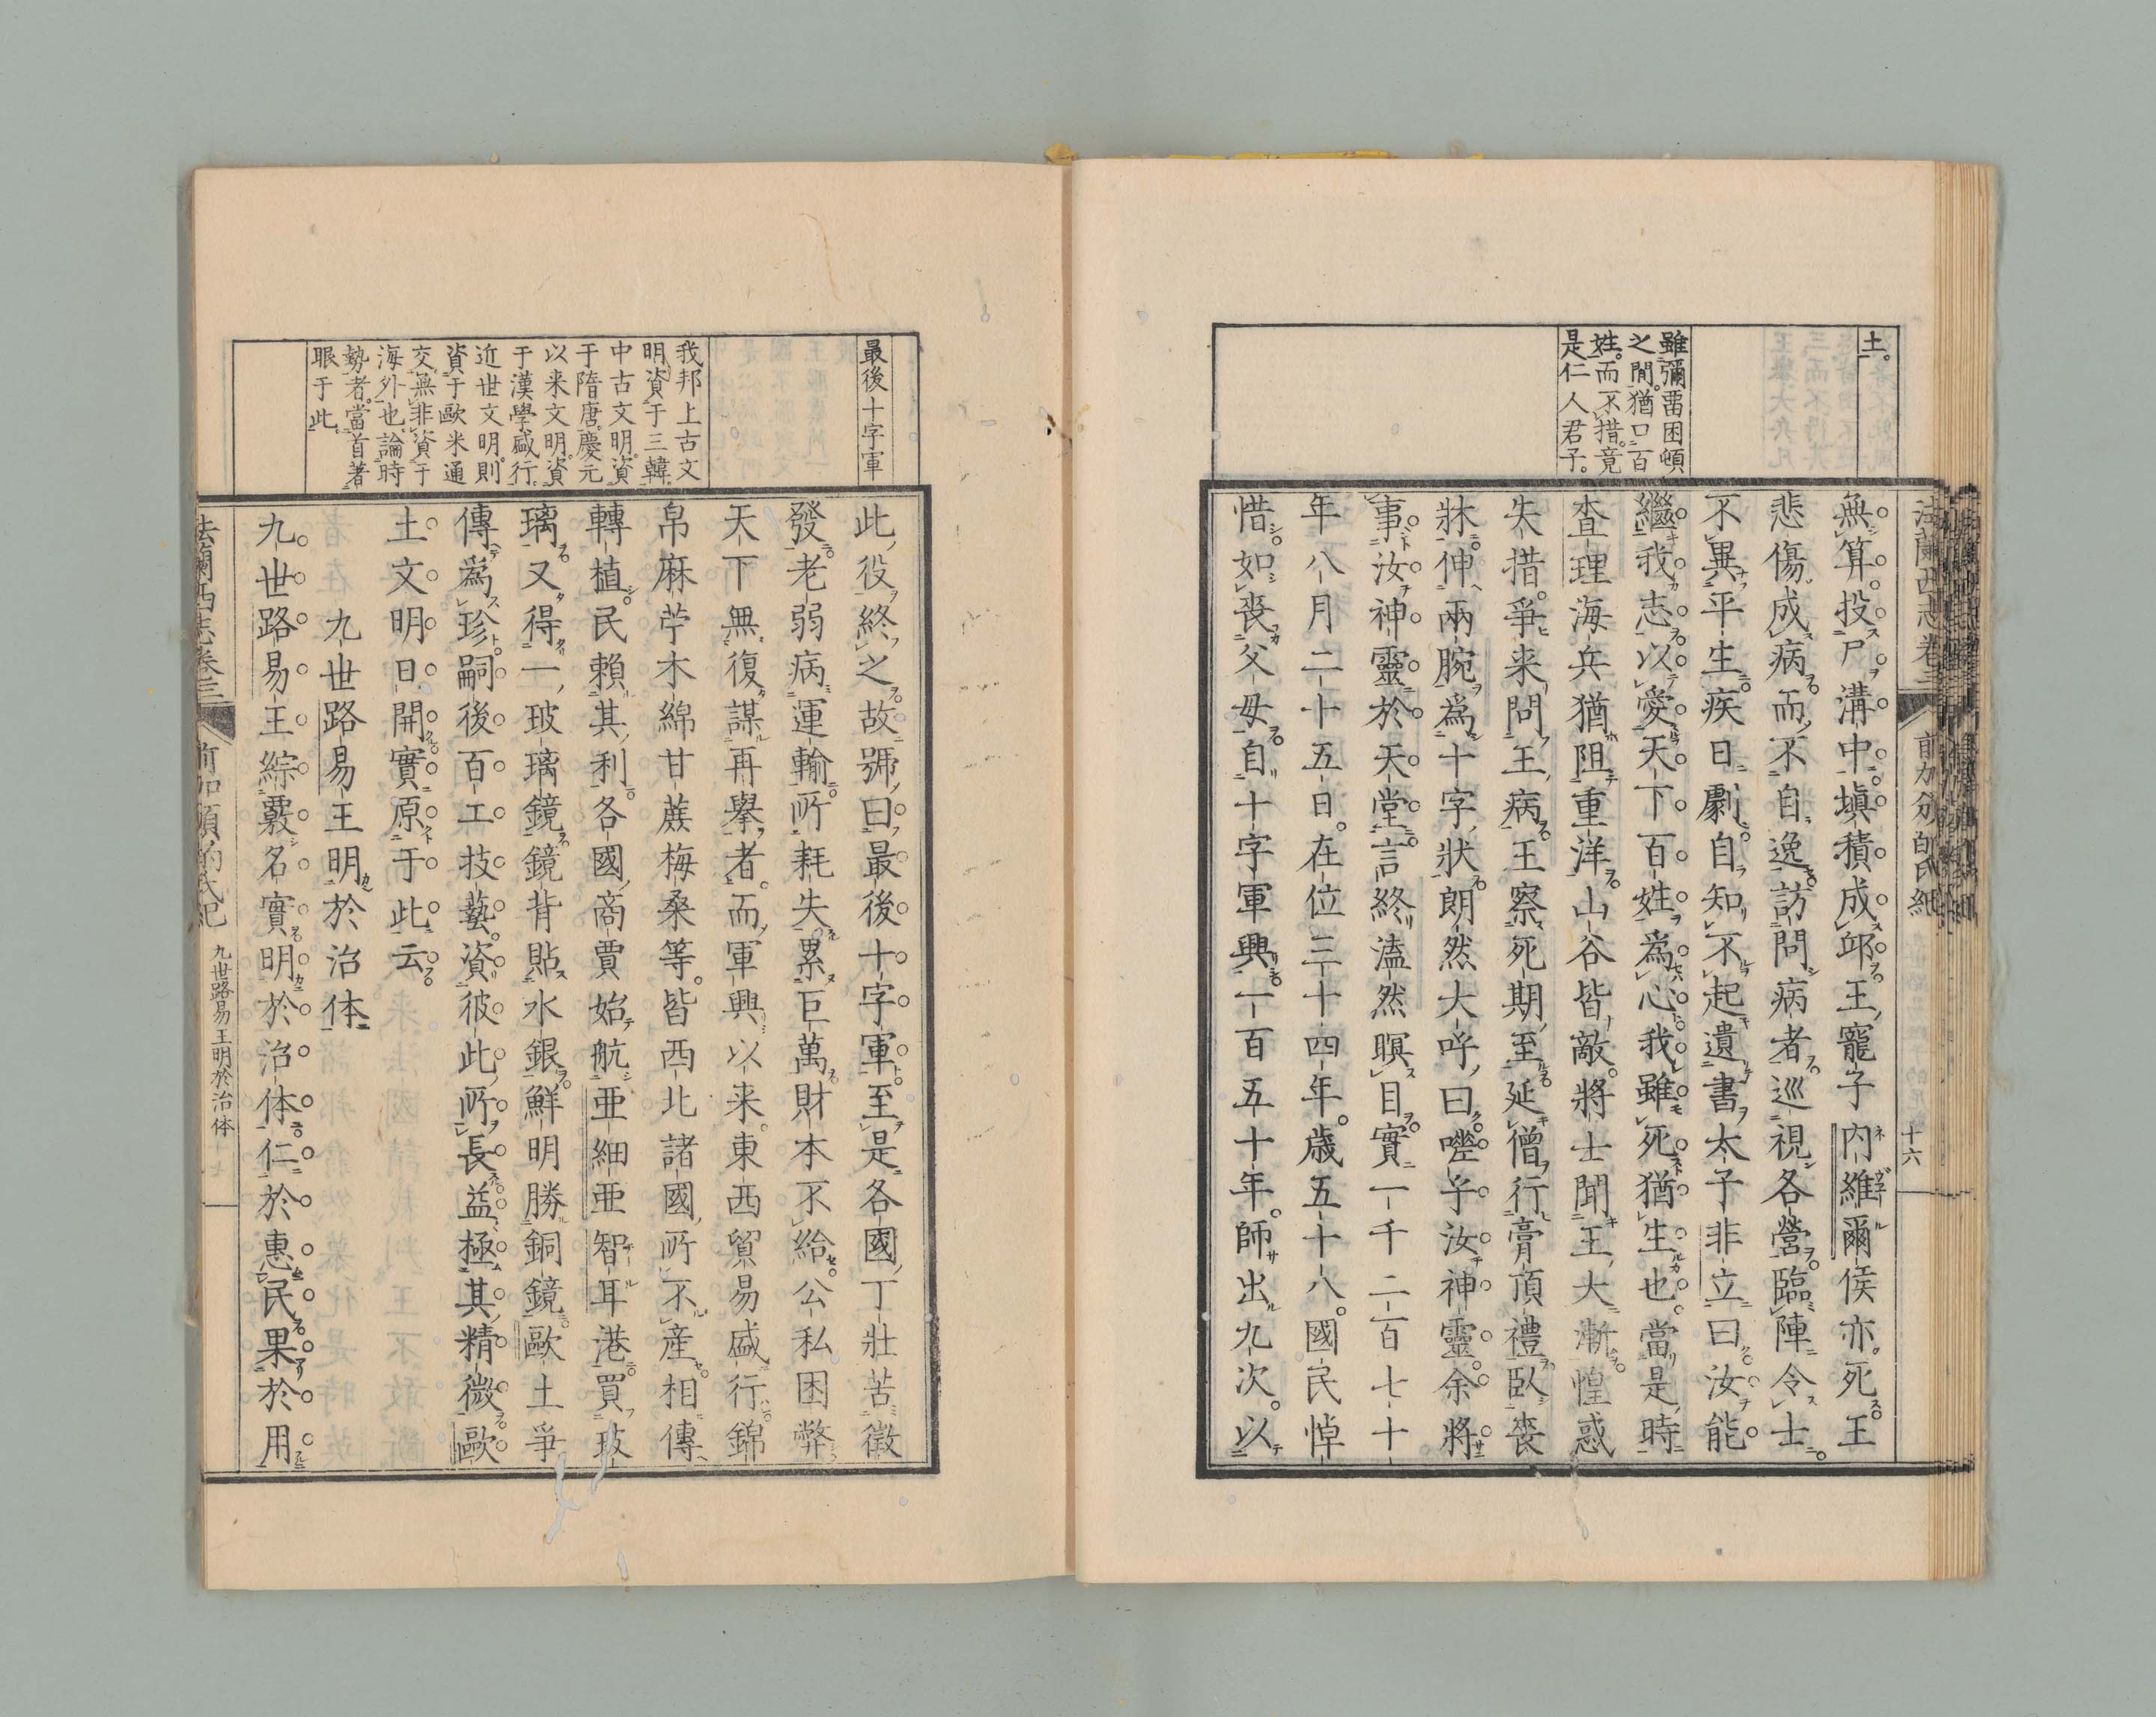 土。
雖彌畱困頓
之間。猶口百
姓。而不措。竟
是仁人君子。
十六
無算。投尸溝中。塡積成邱。王寵子内維爾侯亦死。王
悲傷成病。而不自逸。訪問病者。巡視各營。臨陣令士。
不異平生。疾日劇。自知不起。遺書太子非立曰。汝能
繼我志。以愛天下百姓爲心。我雖死猶生也。當是時
査理海兵猶阻重洋。山谷皆敵。將士聞王大漸。惶惑
失措。爭来問王病。王察死期至。延僧行膏頂禮。臥喪
牀。伸兩腕爲十字狀。朗然大呼曰。嗟乎汝神靈。余將
事汝神靈於天堂。言終溘然瞑目。實一千二百七十
年八月二十五日。在位三十四年。歳五十八。國民悼
惜。如喪父母。自十字軍興一百五十年。師出九次。以
最後十字軍
我邦上古文
明資于三韓
中古文明。資
于隋唐。慶元
以来文明。資
于漢學盛行
近世文明。則
資于歐米通
交。無非資于
海外也。論時
勢者。當首著
眼于此。
此役終之。故號曰最後十字軍。至是各國丁壯苦徵
發。老弱病運輸。所耗失。累巨萬。財本不給。公私困弊。
天下無復謀再擧者。而軍興以来。東西貿易盛行。錦
帛麻苧木綿甘蔗梅桑等。皆西北諸國所不産。相傳
轉植。民賴其利。各國商賈始航亜細亜智耳港。買玻
璃。又得一玻璃鏡。鏡背貼水銀。鮮明勝銅鏡。歐土爭
傳爲珍。嗣後百工技藝。資彼此所長。益極其精微。歐
土文明日開。實原于此云。
九世路易王明於治体
九世路易王。綜覈名實。明於治体。仁於惠民。果於用
法蘭西志卷三
九世路易王明於治体